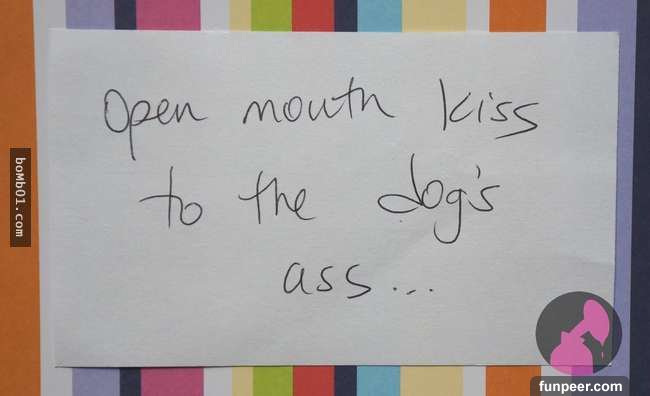 Open mouth kiss
to the dog's
ass...
boMb01.com
funpeer.com